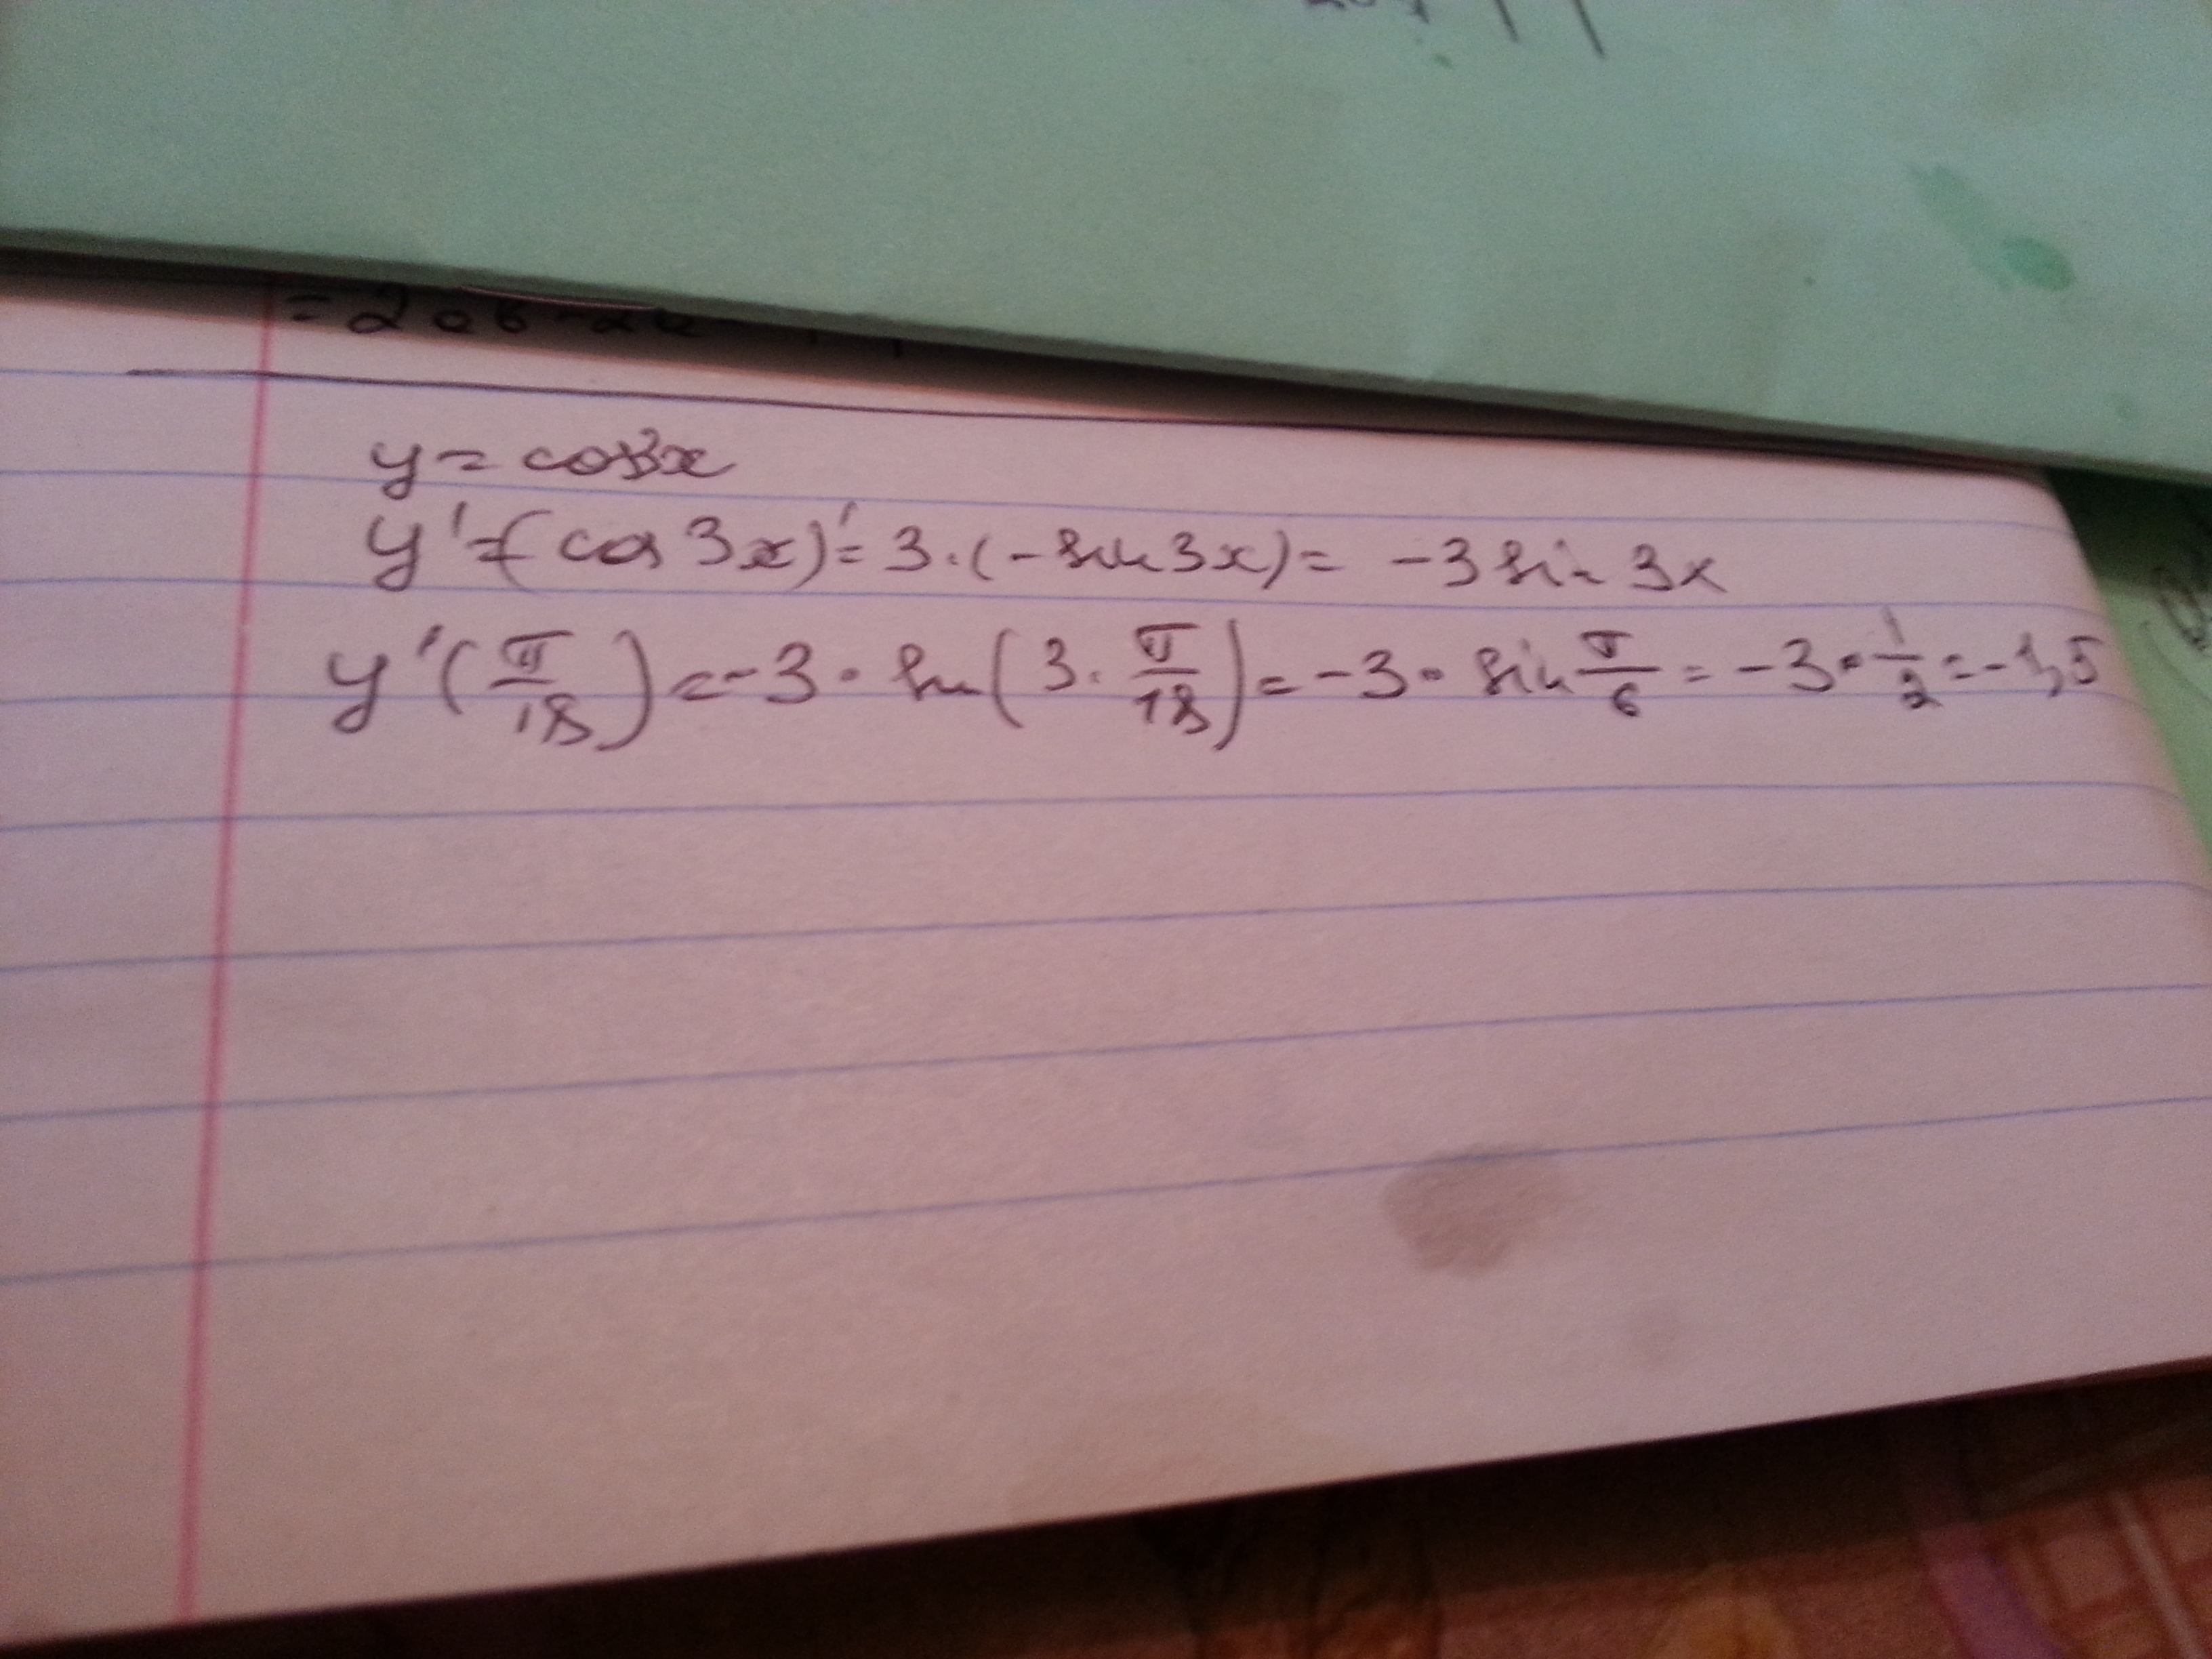 y = cos3x
y' = (cos 3x)' = 3·(-sin 3x) = -3 sin 3x
y'(π/18) = -3 · sin(3 · π/18) = -3 · sin π/6 = -3 · 1/2 = -1,5